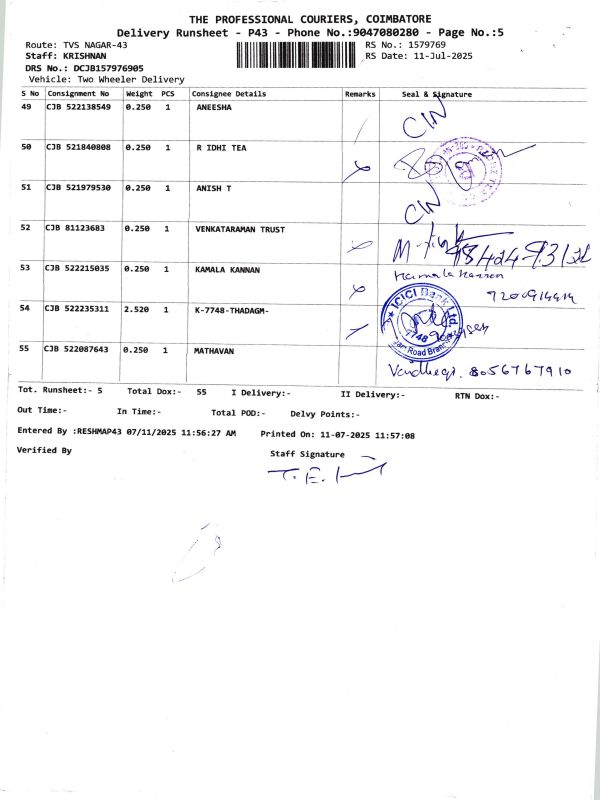 THE PROFESSIONAL COURIERS, COIMBATORE
Delivery Runsheet - P43 - Phone No.:9047080280 - Page No.:5
Route: TVS NAGAR-43 RS No.: 1579769
Staff: KRISHNAN RS Date: 11-Jul-2025
DRS No.: DCJB157976905
Vehicle: Two Wheeler Delivery
S No Consignment No Weight PCS Consignee Details Remarks Seal & Signature
49 CJB 522138549 0.250 1 ANEESHA
50 CJB 521840808 0.250 1 R IDHI TEA
51 CJB 521979530 0.250 1 ANISH T
52 CJB 81123683 0.250 1 VENKATARAMAN TRUST
53 CJB 522215035 0.250 1 KAMALA KANNAN Kamala Kannan
54 CJB 522235311 2.520 1 K-7748-THADAGM- ICICI Bank Ltd. Road Branch
55 CJB 522087643 0.250 1 MATHAVAN 8056767910
Tot. Runsheet:- 5 Total Dox:- 55 I Delivery:- II Delivery:- RTN Dox:-
Out Time:- In Time:- Total POD:- Delvy Points:-
Entered By :RESHMAP43 07/11/2025 11:56:27 AM Printed On: 11-07-2025 11:57:08
Verified By Staff Signature